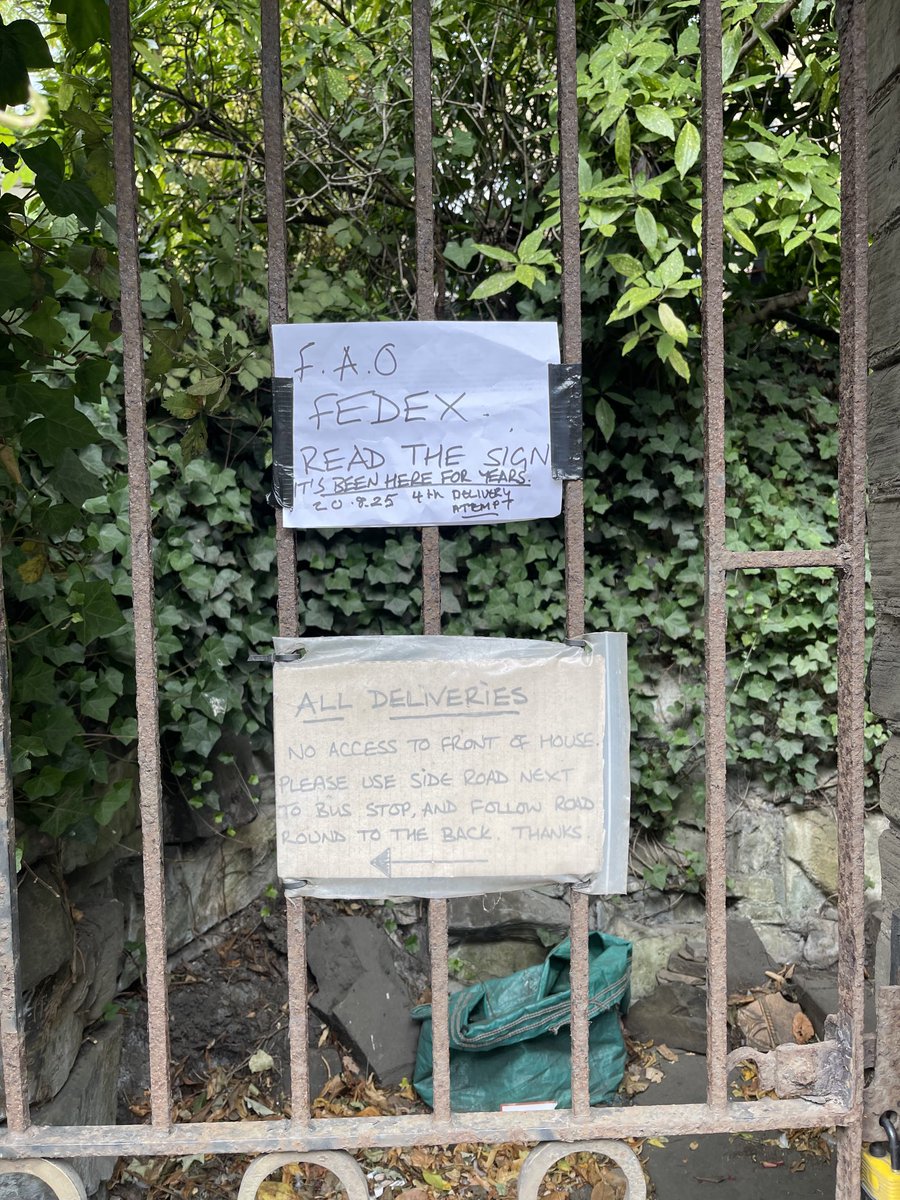 F.A.O
FEDEX.
READ THE SIGN
IT'S BEEN HERE FOR YEARS.
20.8.25 4th DELIVERY
ATEMPT
ALL DELIVERIES
NO ACCESS TO FRONT OF HOUSE.
PLEASE USE SIDE ROAD NEXT
TO BUS STOP, AND FOLLOW ROAD
ROUND TO THE BACK. THANKS.